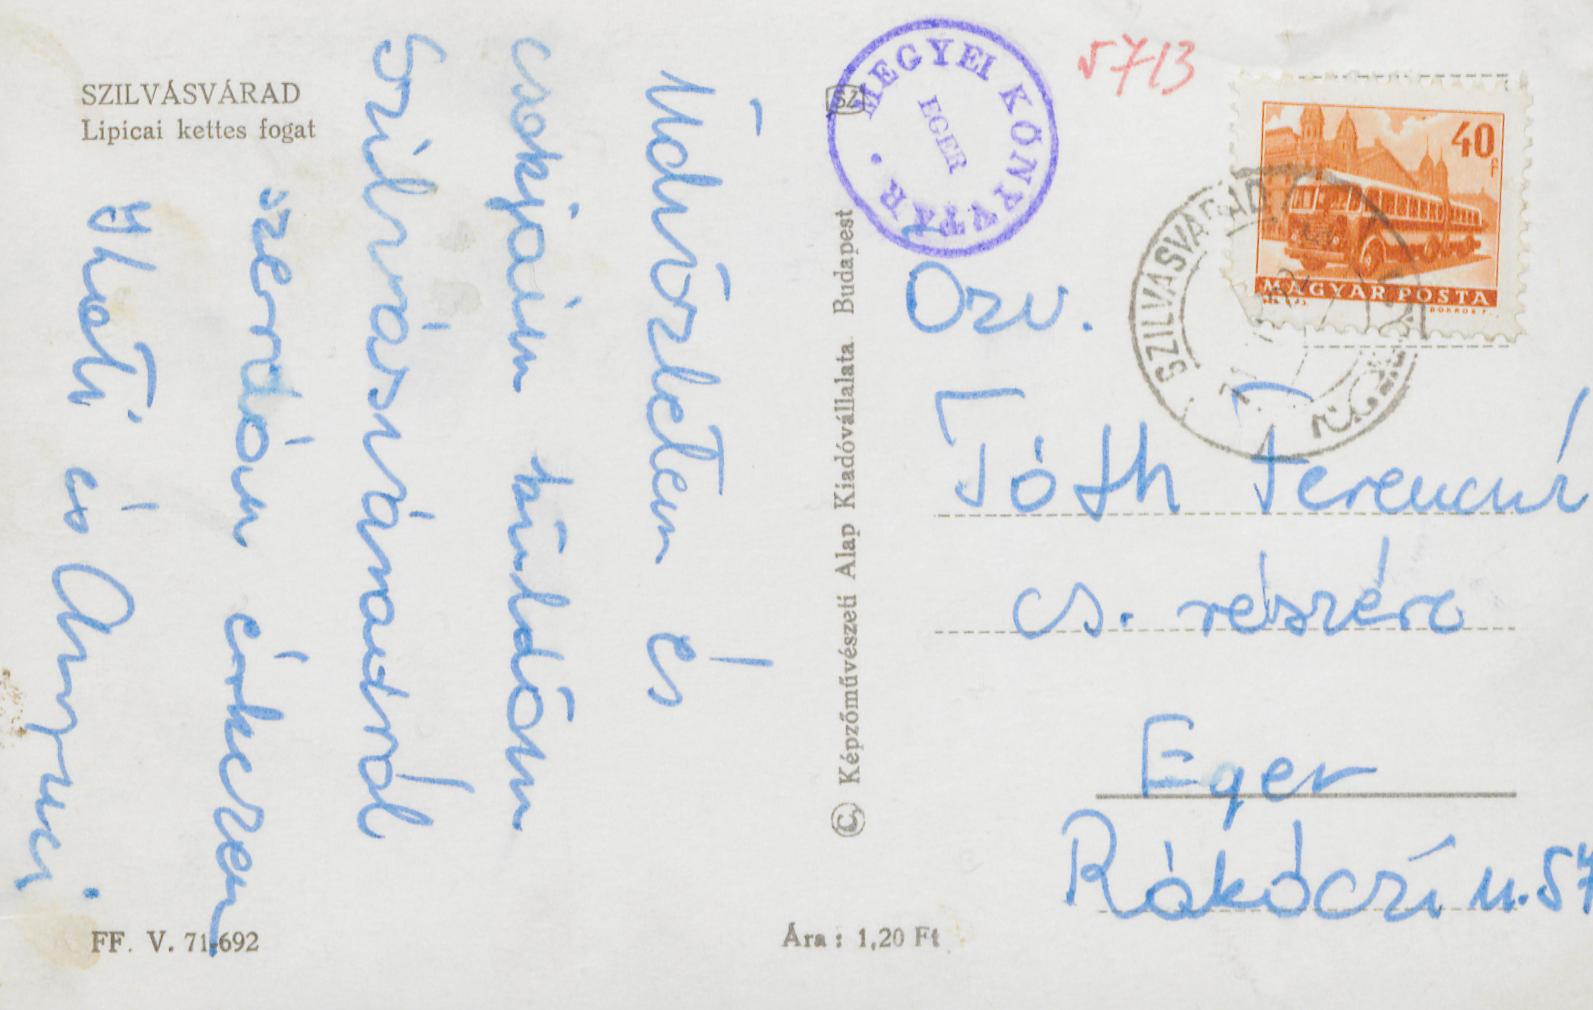 SZILVÁSVÁRAD
Lipicai kettes fogat
Üdvözletem és
csokjaim küldöm
Szilvásváradról
szerdán érkezem
Kati és Anyuci.
FF. V. 71-692
Ára : 1,20 Ft
© Képzőművészeti Alap Kiadóvállalata Budapest
SZ
MEGYEI KÖNYVTÁR
EGER
5713
40 f
MAGYAR POSTA
SZILVÁSVÁRAD
Özv.
Tóth Ferencné
cs. részére
Eger
Rákóczi u. 57